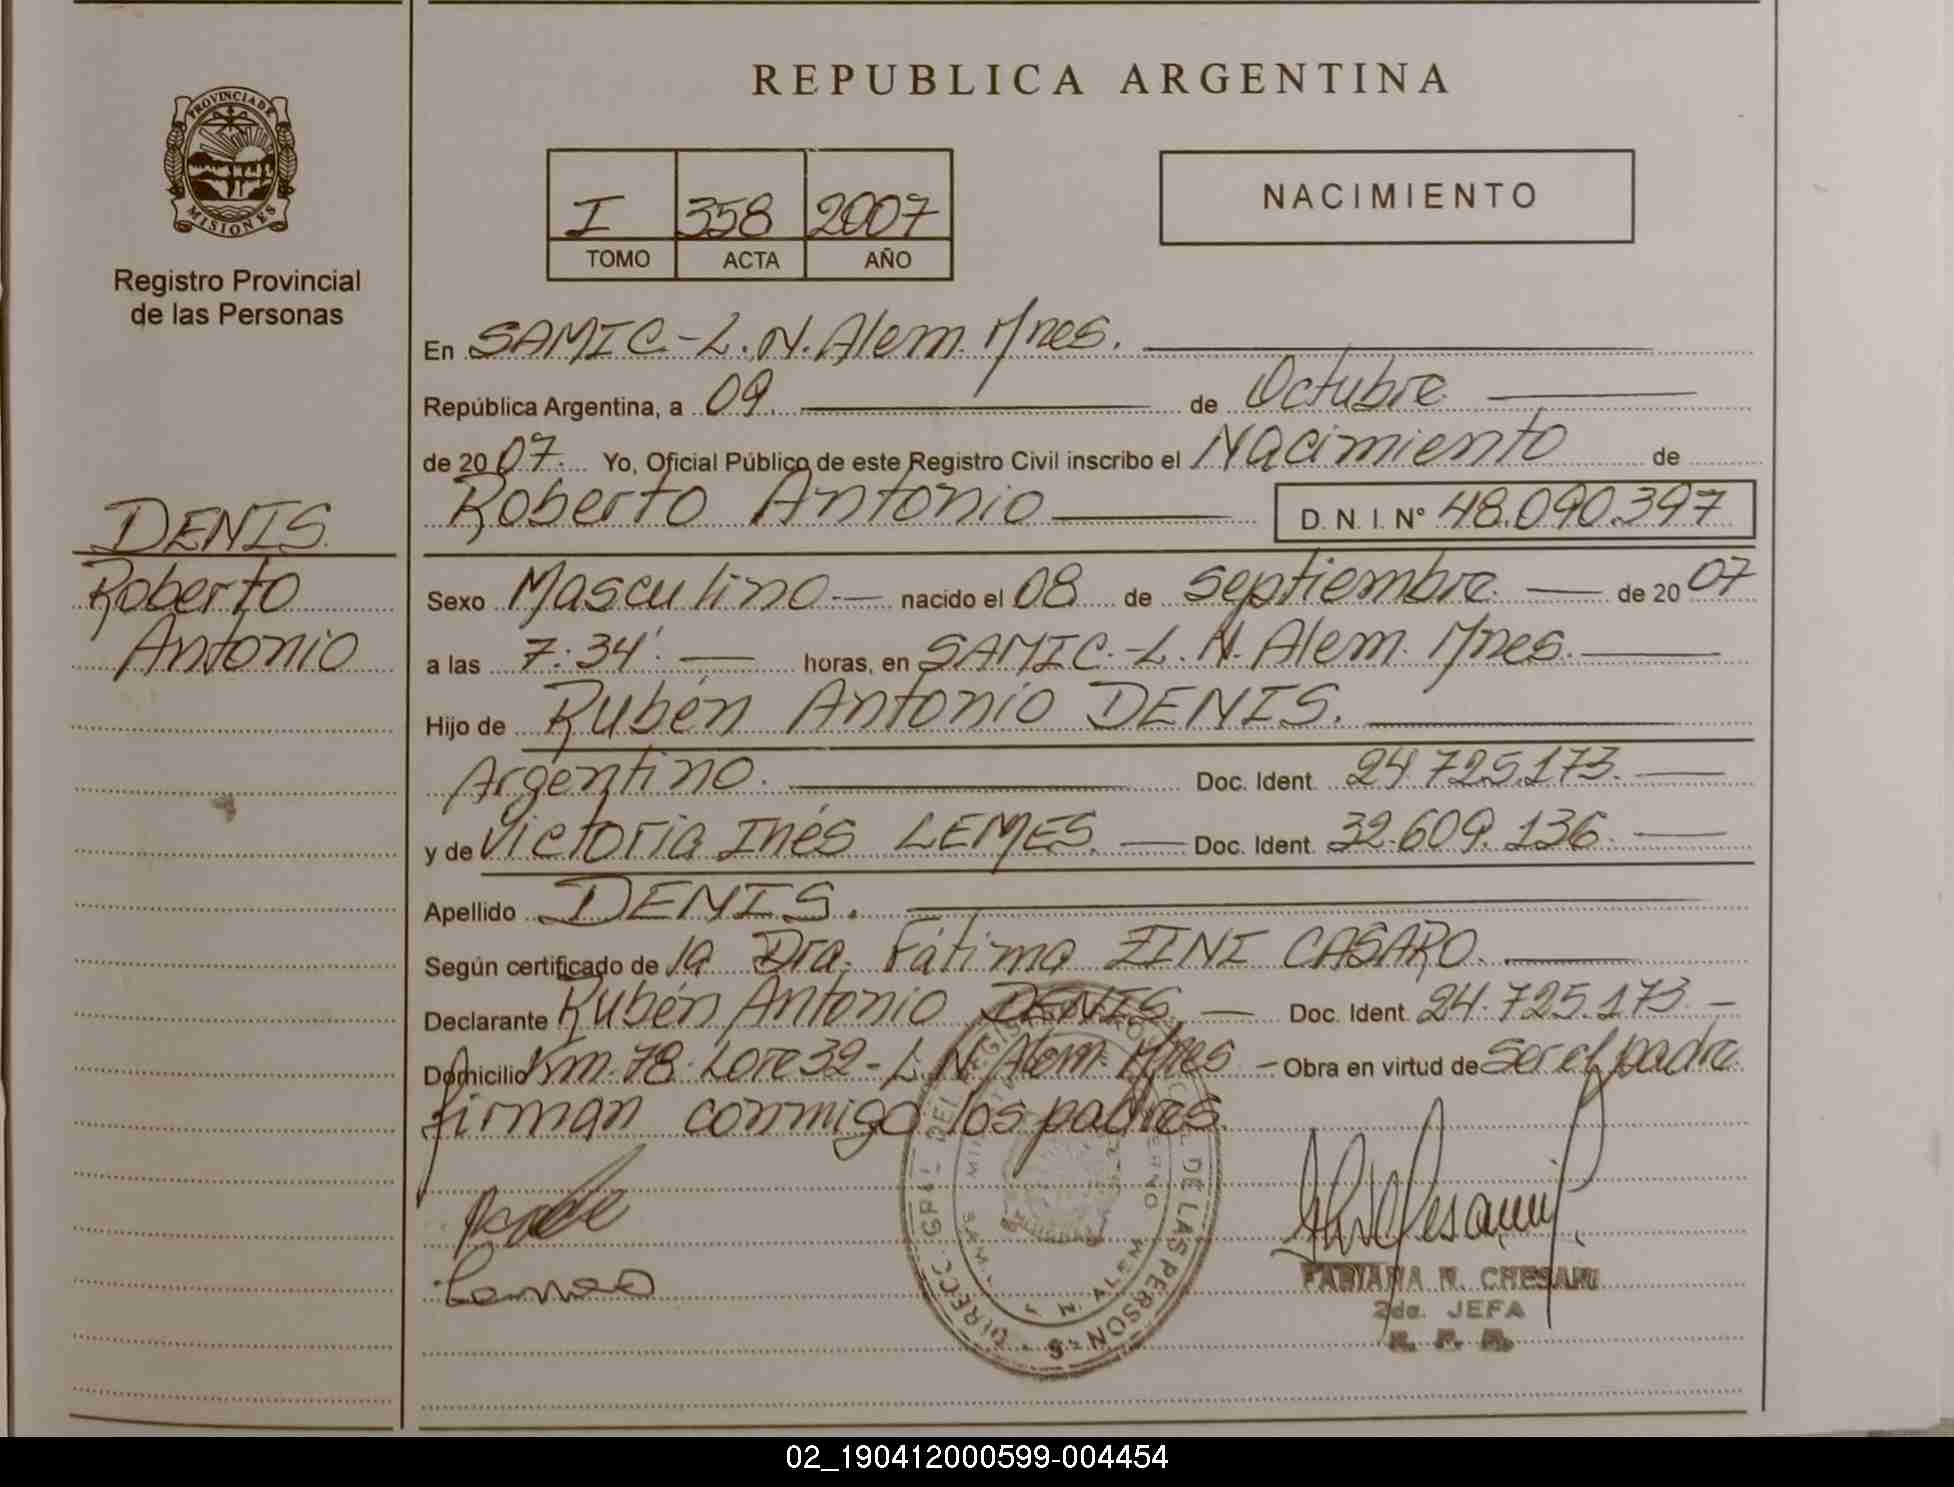 REPUBLICA ARGENTINA
PROVINCIA DE MISIONES
Registro Provincial
de las Personas
I 358 2007
TOMO ACTA AÑO
NACIMIENTO
En SAMIC-L.N.Alem. Mnes.
República Argentina, a 09. de Octubre
de 2007. Yo, Oficial Público de este Registro Civil inscribo el Nacimiento de
Roberto Antonio D. N. I. N° 48.090.397
DENIS.
Roberto
Antonio
Sexo Masculino. nacido el 08 de septiembre. de 2007
a las 7:34'. horas, en SAMIC.-L.N.Alem. Mnes.
Hijo de Rubén Antonio DENIS.
Argentino. Doc. Ident. 24.725.173.
y de Victoria Inés LEMES. Doc. Ident. 32.609.136.
Apellido DENIS.
Según certificado de la Dra. Fátima ZINI CASARO.
Declarante Rubén Antonio DENIS Doc. Ident. 24.725.173
Domicilio Km.78. Lote 32-L.N.Alem. Mnes Obra en virtud de ser el padre
firman conmigo los padres.
FABIANA N. CHESANI
2da. JEFA
R. P. P.
DIRECC. GRAL. DEL REGISTRO DE LAS PERSONAS
02_190412000599-004454